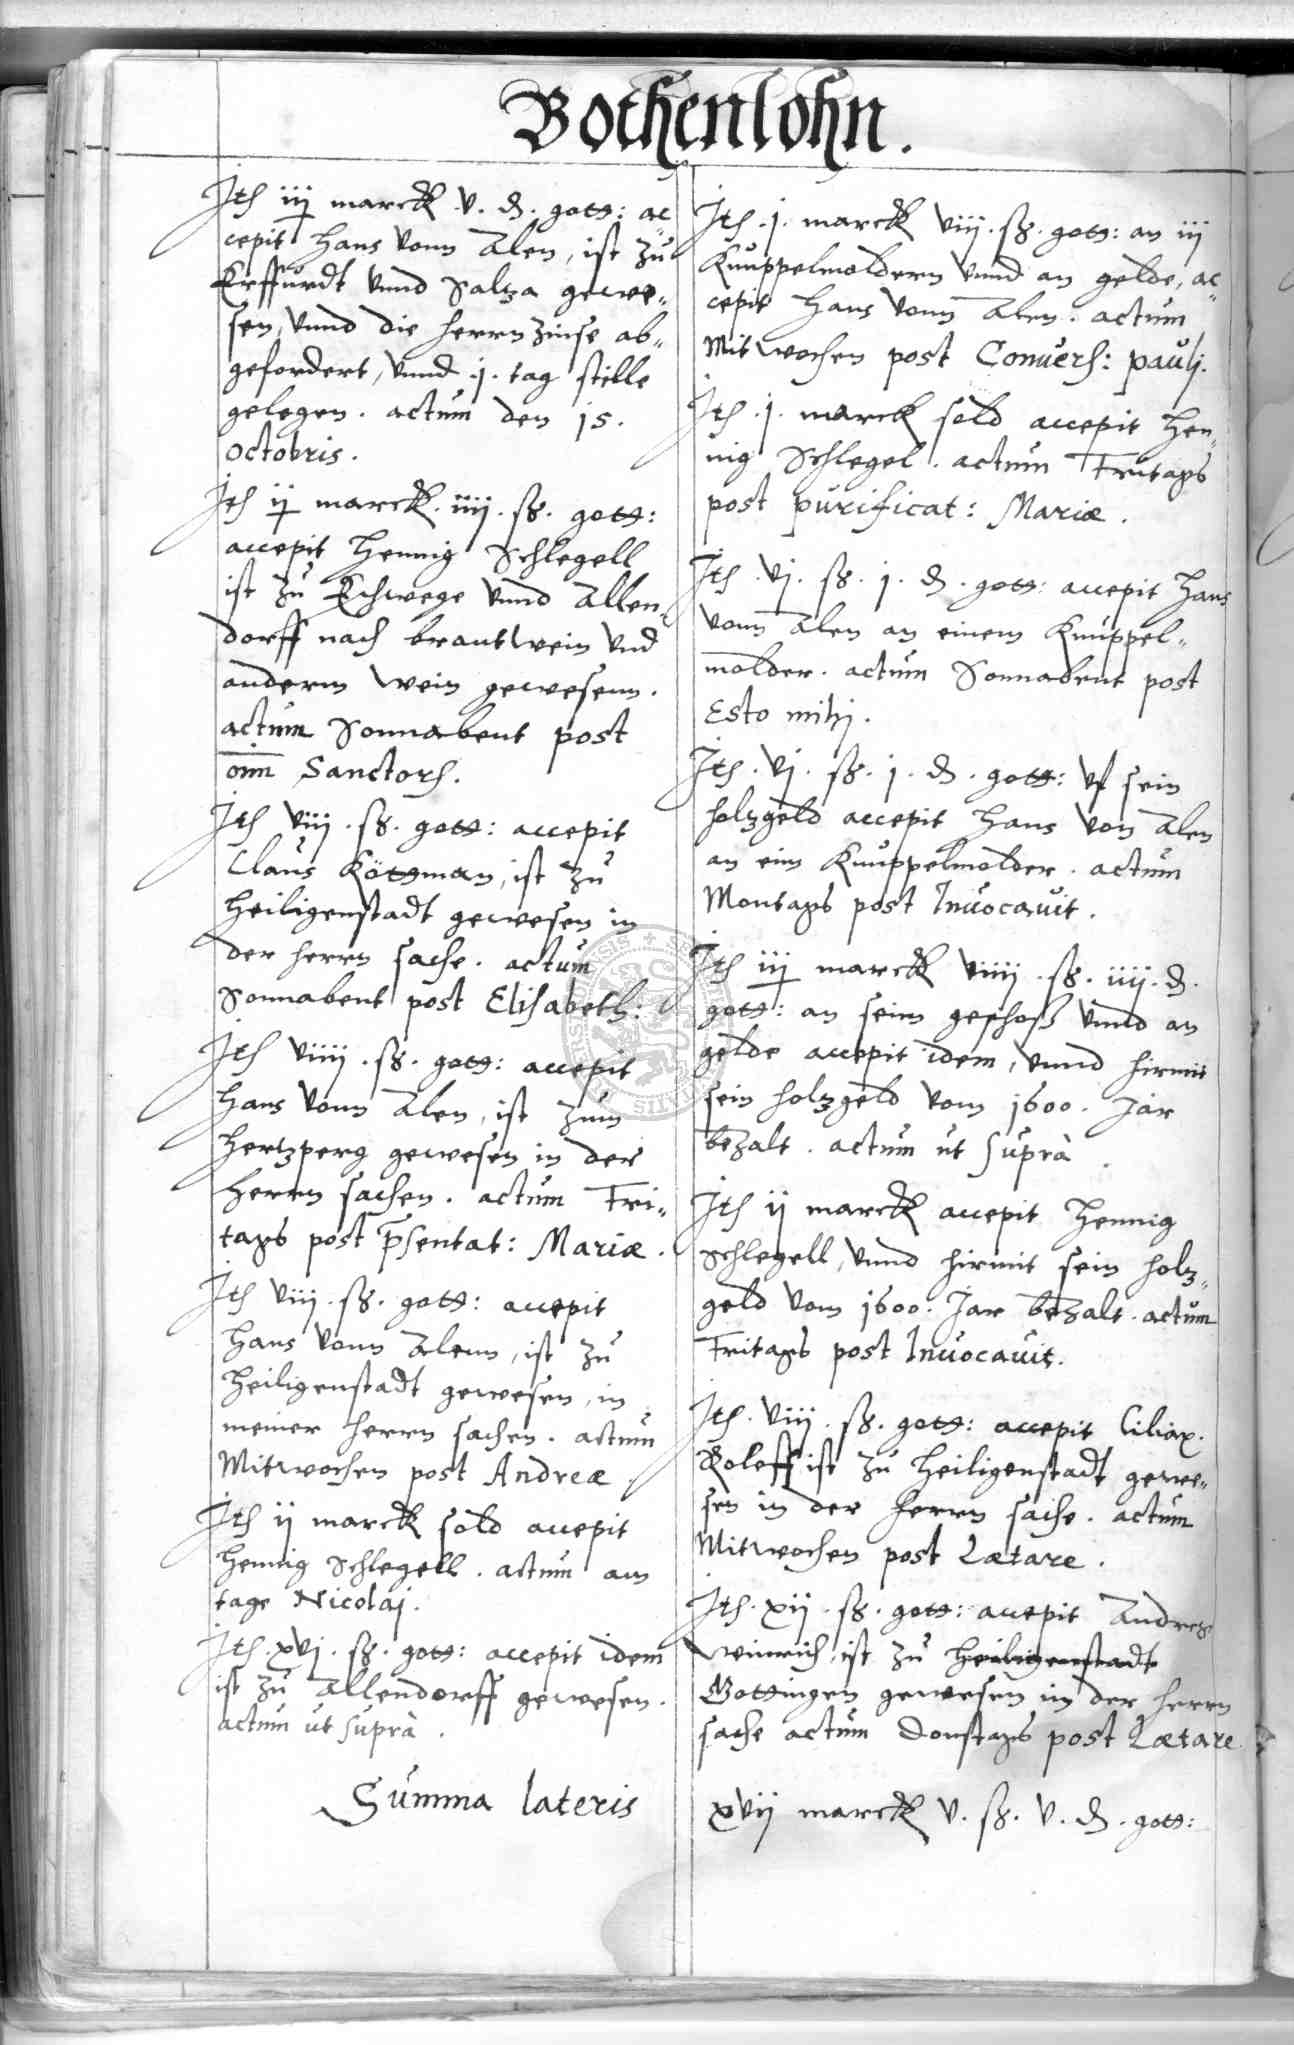 Bothenlohn.
Ith iij marck v. d. gott: ac
cepit Hans vonn Alen, ist zu
Erffurdt vnnd Saltza gewe„
sen, vnnd die herrn zinse ab„
gefordert, vnnd j. tag stille
gelegen. actum den 15.
octobris.
Ith ij marck. iiij. ß. gott:
accepit Hennig Schlegell
ist zu Eschwege vnnd Allen„
dorff nach brantwein vnd
anderm wein gewesenn.
actum Sonnabent post
oim Sanctorh.
Ith viij. ß. gott: accepit
Claus Köttman, ist zu
Heiligenstadt gewesen in
der herrn sache. actum
Sonnabent post Elisabeth:
Ith viiij. ß. gott: accepit
Hans vonn Alen, ist zum
Hertzperg gewesen in der
Herrn sachen. actum Fri„
tags post psentat: Mariæ.
Ith viij. ß. gott: accepit
Hans vonn Alenn, ist zu
Heiligenstadt gewesen, in
meiner herrn sachen. actum
Mitwochen post Andreæ.
Ith ij marck sold accepit
Hennig Schlegell. actum am
tage Nicolaj.
Ith. xvj. ß. gott: accepit idem
ist zu Allendorff gewesen.
actum ut suprà.
Ith. j. marck viij. ß. gott: an iij
Knuppelmoldern vnnd an gelde, ac„
cepit Hans vonn Alen. actum
Mitwochen post Conuers: pauli.
Ith. j. marck sold accepit Hen„
nig Schlegel. actum Fritags
post purificat: Mariæ.
Ith. vj. ß. j. d. gott: accepit Hans
vonn Alen an einem Knuppel„
molder. actum Sonnabent post
Esto mihi.
Ith. vj. ß. j. d. gott: vf sein
holtzgeld accepit Hans von Alen
an eim Knuppelmolder. actum
Montags post Inuocauit.
Ith iij marck viiij. ß. iiij. d.
gott: an seim geschoß vnnd an
gelde accepit idem, vnnd hirmit
sein holtzgeld vom 1600. Jar
bezalt. actum ut suprà.
Ith ij marck accepit Hennig
Schlegell, vnnd hirmit sein holtz„
geld vom 1600. Jar bezalt. actum
Fritags post Inuocauit.
Ith. viij. ß. gott: accepit Ciliax.
Roleff ist zu Heiligenstadt gewe„
sen in der Herrn sache. actum
Mitwochen post Lætare.
Ith. xij. ß. gott: accepit Andres
Winrich, ist zu Heiligenstadt
Gottingen gewesen in der Herrn
sache actum Donstags post Lætare
Summa lateris
xvij marck v. ß. v. d. gott: